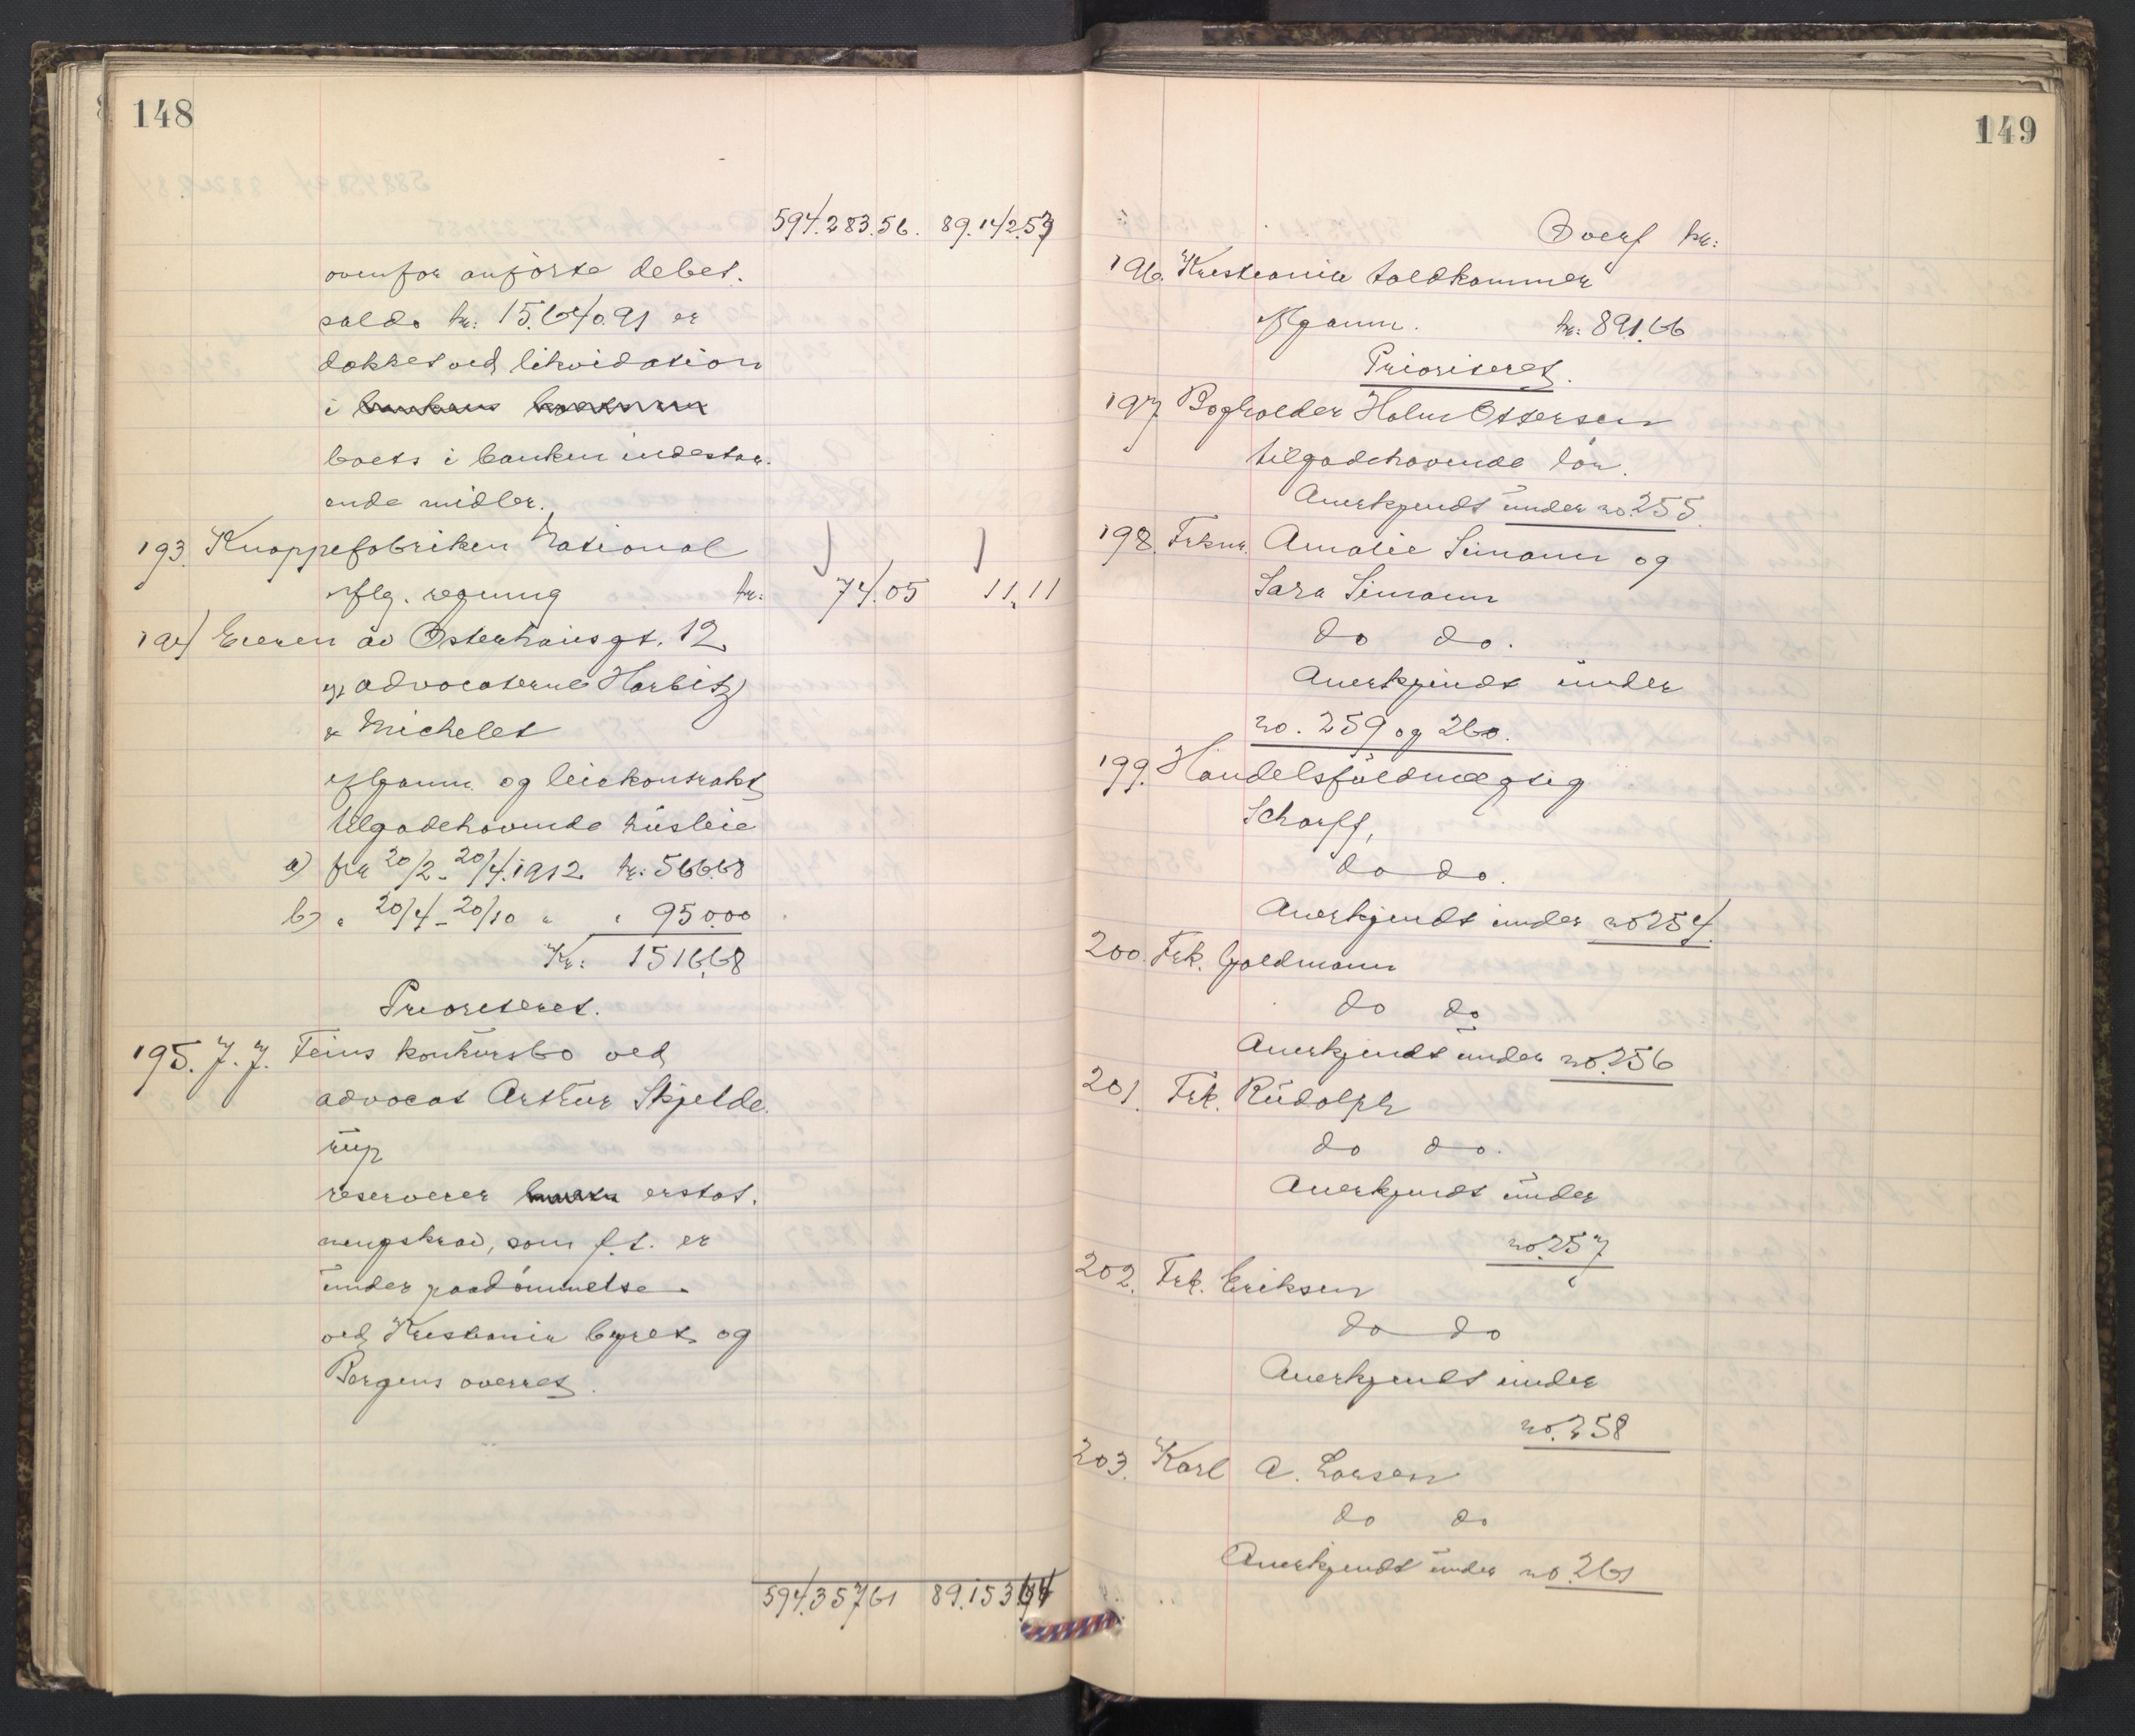 148
594.283.56. 89.142.53
ovenfor anførte debet.
saldo kr: 15.640.91 er
dækket ved likvidation
i
boets i banken indestaa.
ende midler.
193. Knappefabriken National
iflg. regning kr: 74.05 11.11
194) Eieren av Osterhausgt. 12
v/ advocaterne Harbitz
& Michelet
iflg anm. og leiekontrakt
tilgodehavende husleie
a) fra 20/2 - 20/4.1912 kr: 566.68
b) " 20/4 - 20/10 " " 950.00
Kr: 1516.68
Prioriteret.
195. J. J. Feins konkursbo ved
advocat Arthur Skjelde.
rup
reserverer erstat.
ningskrav, som f.t. er
under paadømmelse
ved Kristiania byret og
Bergens overret.
594.357.61 89.153.64
149
Overf kr:
196. Kristiania toldkammer
iflg anm. kr: 891.66
Prioriteret.
197. Bogholder Holm Ottersen
tilgodehavende løn.
Anerkjendt under no. 255.
198. Frknr. Amalie Simann og
Sara Simann
do do.
Anerkjendt under
no. 259 og 260.
199. Handelsfuldmægtig
Scharff,
do do.
Anerkjendt under no 254.
200. Frk. Goldmann
do do
Anerkjendt under no. 256
201. Frk. Rudolph
do do.
Anerkjendt under
no. 257
202. Frk. Eriksen
do do
Anerkjendt under
no. 258
203. Karl A. Larsen
do do
Anerkjendt under no. 261